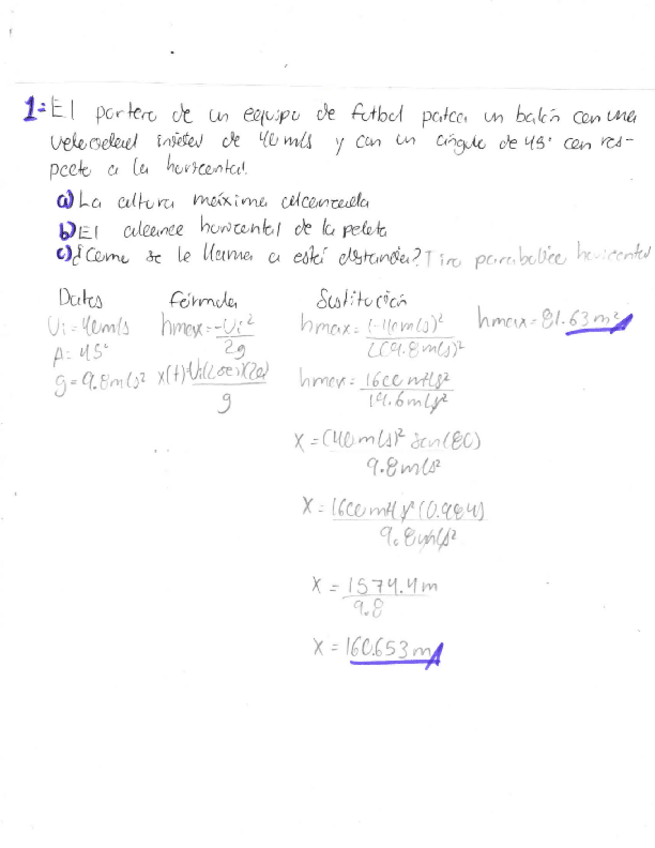 1= El portero de un equipo de futbol patea un balón con una
velocidad inicial de 40 m/s y con un ángulo de 45° con res-
pecto a la horizontal.
a) La altura máxima alcanzada
b) El alcance horizontal de la pelota
c) ¿Como se le llama a está distancia? Tiro parabolico horizontal
Datos Fórmula Sustitución
Vi = 40 m/s hmax = -Vi²/2g hmax = (-40 m/s)²/2(9.8 m/s)² hmax = 81.63 m
A = 45°
g = 9.8 m/s² hmax = 1600 m²/s²/19.6 m/s²
g
X = (40 m/s)² Sen(80)/9.8 m/s²
X = 1600 m²/s² (0.984)/9.8 m/s²
X = 1574.4 m/9.8
X = 160.653 m